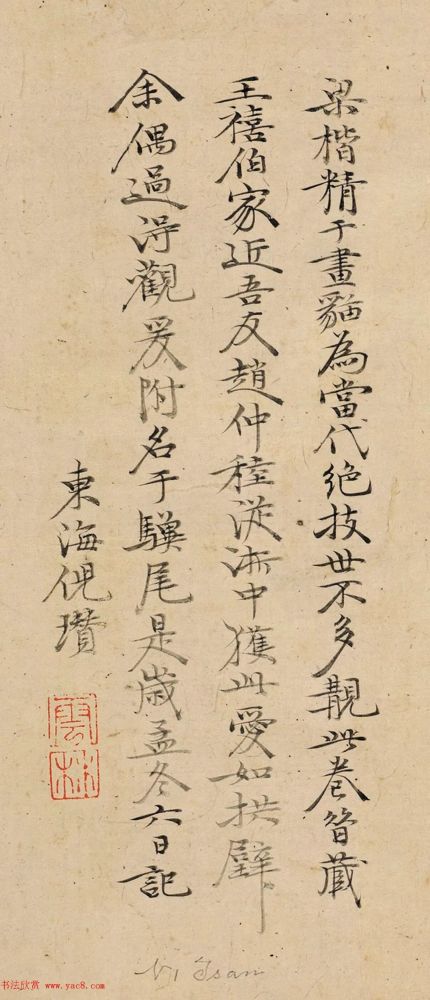 梁楷精于畫貓為當代絕技世不多覯此卷曾藏
王禧伯家近吾友趙仲穆從浙中獲此愛如拱璧
余偶過得觀爰附名于驥尾是歲孟冬六日記
東海倪瓚
雲林
Ni Tsan
书法欣赏 www.yac8.com